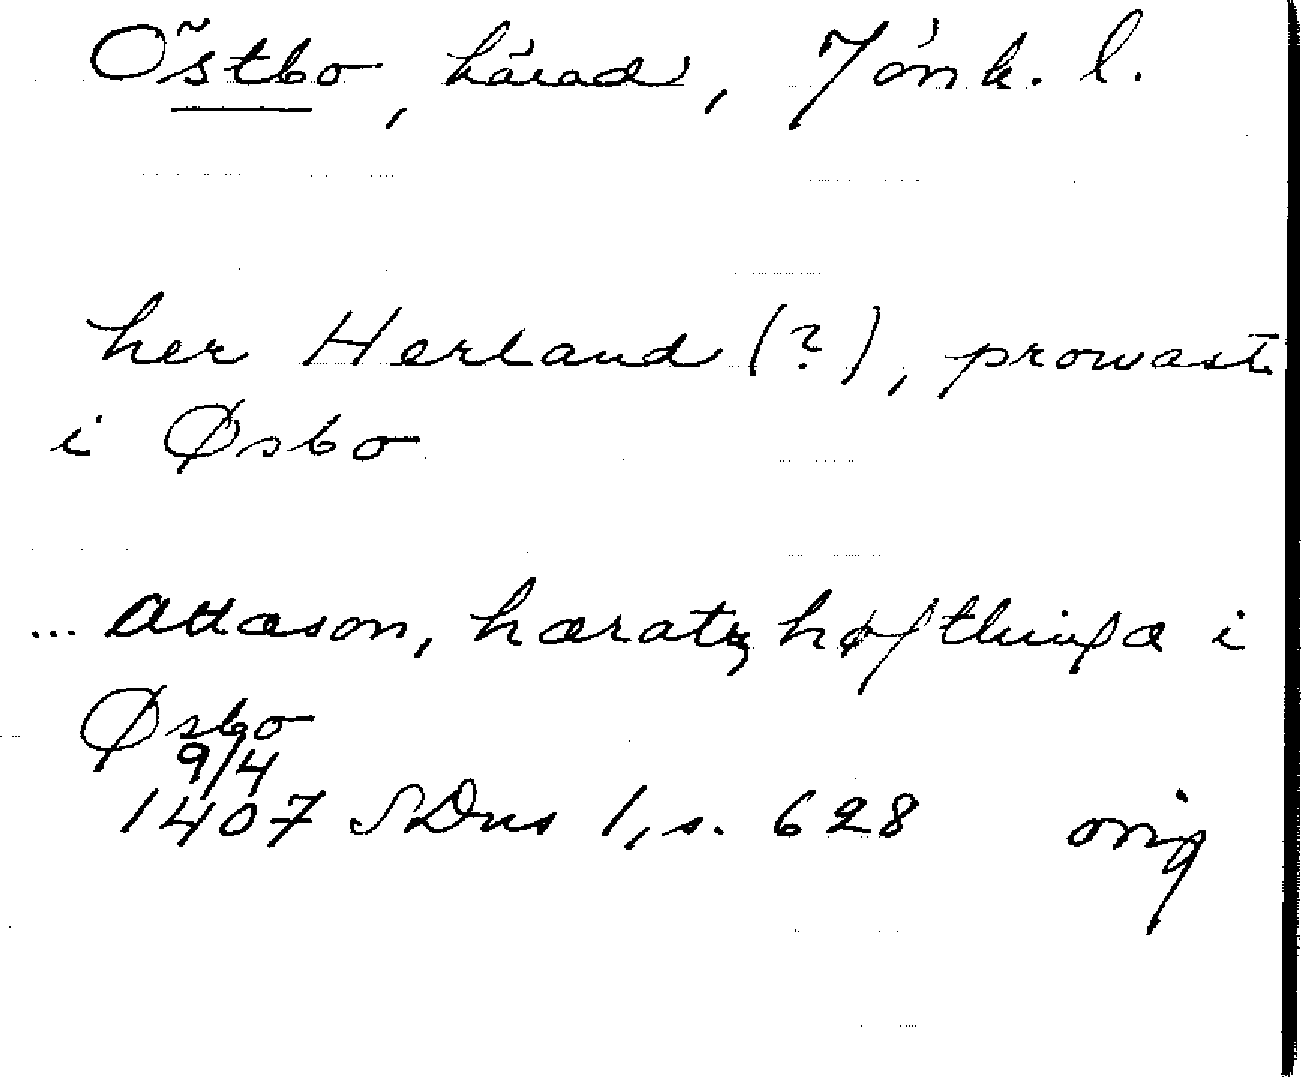 Östbo, härad, Jönk. l.
her Herland (?), prowast
i Øsbo
... Attason, hæratz høfthinga i
Øsbo
9/4
1407 SDns 1, s. 628 orig